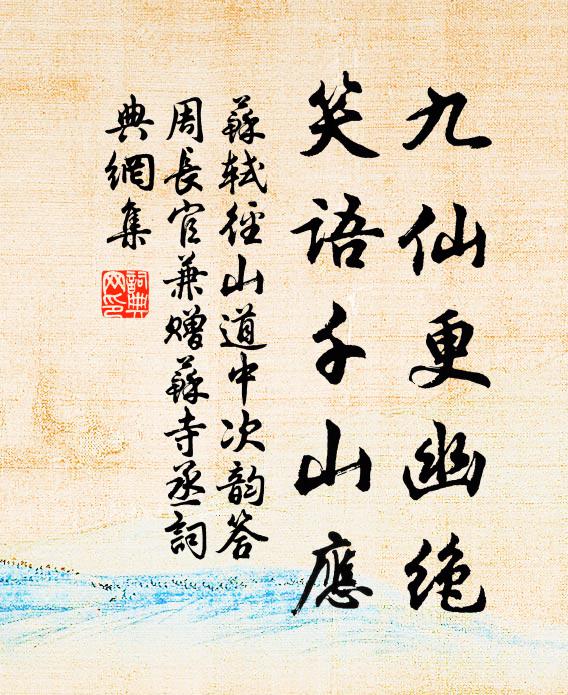 九仙更幽绝
笑語千山應
蘇軾徑山道中次韵答
周長官兼赠蘇寺丞詞
典網集
詞典网印